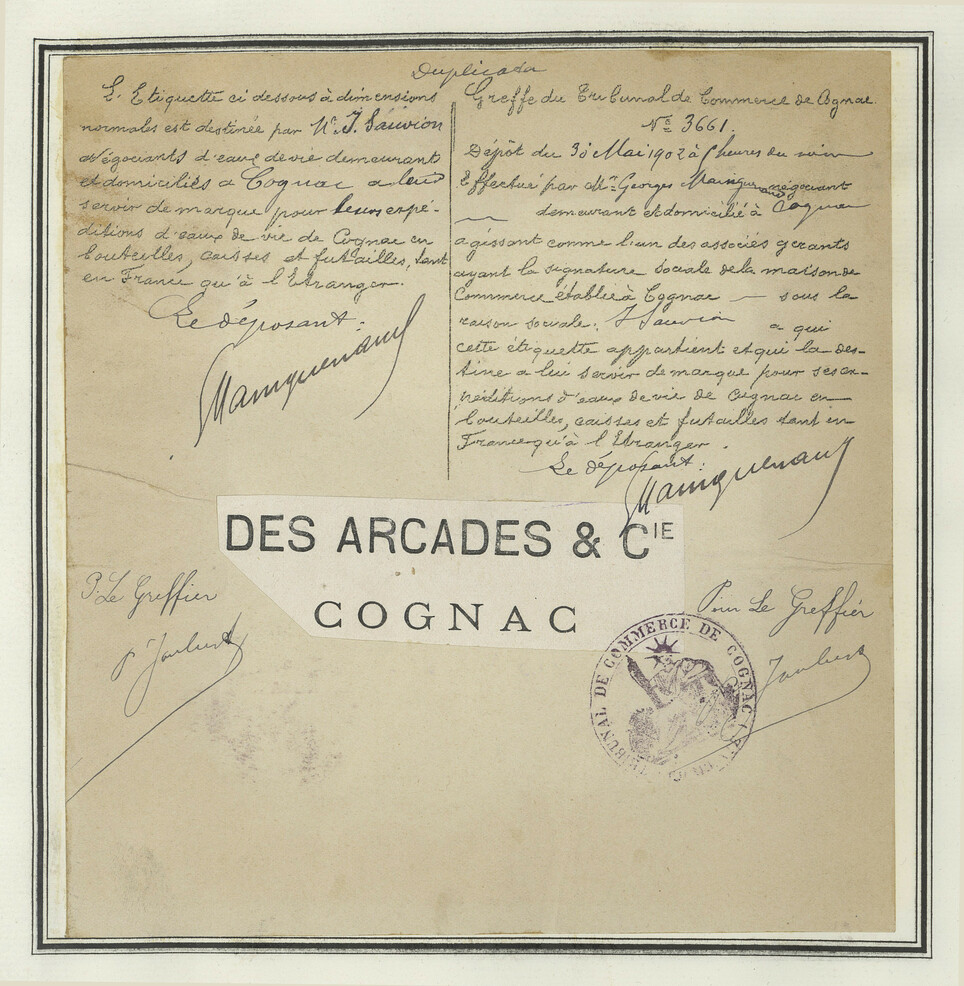 Duplicata
L'Etiquette ci dessous à dimensions
normales est destinée par Mr J. Sauvion
Négociants d'eaux de vie demeurant
et domiciliés a Cognac a leur
servir de marque pour leurs expé-
ditions d'eaux de vie de Cognac en
bouteilles, caisses et futailles, tant
en France qu'à l'Etranger.
Le déposant:
Mainguenaud
Greffe du Tribunal de Commerce de Cognac
No 3661.
Dépôt du 30 Mai 1902 à heures du soir
Effectué par Mr Georges Mainguenaud négociant
demeurant et domicilié à Cognac
agissant comme l'un des associés gerants
ayant la signature sociale de la maison de
Commerce établie à Cognac — sous la
raison sociale: J Sauvion a qui
cette étiquette appartient et qui la des-
tine a lui servir de marque pour ses ex-
péditions d'eaux de vie de Cognac en
bouteilles, caisses et futailles tant en
France qu'à l'Etranger.
Le déposant:
Mainguenaud
DES ARCADES & CIE
COGNAC
P. Le Greffier
Joubert
Pour Le Greffier
Joubert
TRIBUNAL DE COMMERCE DE COGNAC